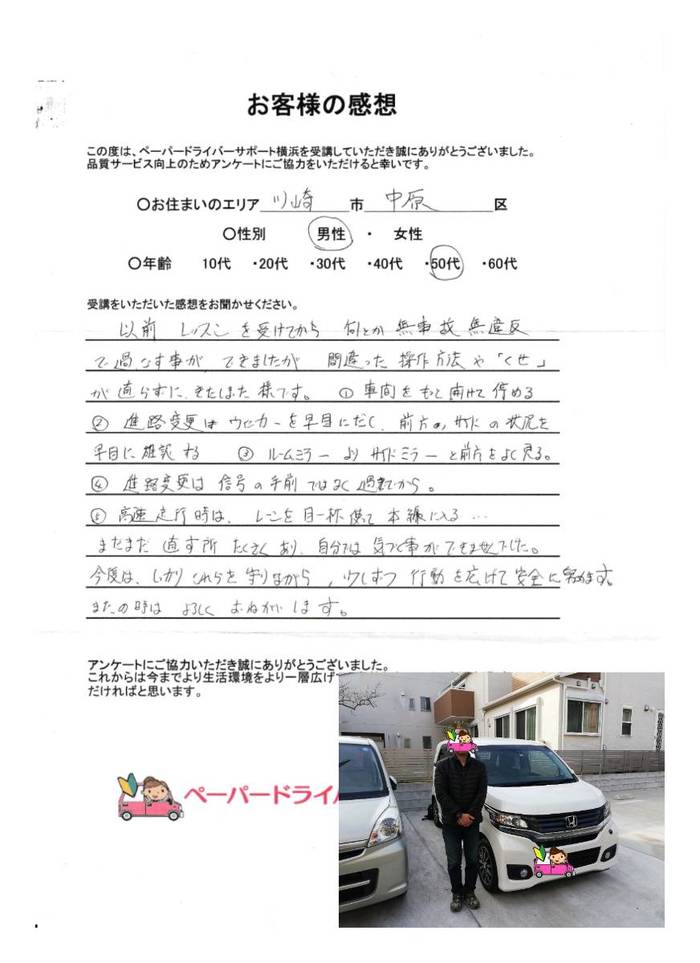 お客様の感想
この度は、ペーパードライバーサポート横浜を受講していただき誠にありがとうございました。
品質サービス向上のためアンケートにご協力をいただけると幸いです。
〇お住まいのエリア 川崎 市 中原 区
〇性別 男性 ・ 女性
〇年齢 10代 ・20代 ・30代 ・40代 ・50代 ・60代
受講をいただいた感想をお聞かせください。
以前 レッスンを受けてから 何とか 無事故 無違反
で過ごす事が できましたが 間違った 操作方法や「くせ」
が直らずに きたしまた様です。 ① 車間をもっと開けて停める
② 進路変更はウインカーを早目にだし、前方、サイドの状況を
早目に確認する ③ ルームミラーよりサイドミラーと前方をよく見る。
④ 進路変更は信号の手前ではなく過ぎてから。
⑤ 高速走行時は、レーンを目一杯使って本線に入る…
まだまだ 直す所 たくさんあり、自分では気づく事ができませんでした。
今度は、しっかりこれらを守りながら、少しずつ行動を広げて安全に努めます。
またの時は よろしく おねがいします。
アンケートにご協力いただき誠にありがとうございました。
これからは今までより生活環境をより一層広げ
だければと思います。
ペーパードライバ